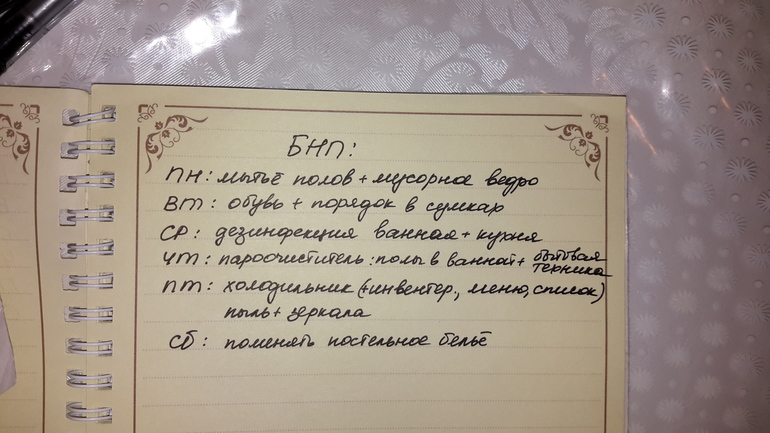 БНП:
ПН: мытьё полов + мусорное ведро
ВТ: обувь + порядок в сумках
СР: дезинфекция ванная + кухня
ЧТ: пароочиститель: полы в ванной + бытовая техника
ПТ: холодильник (+инвентер., меню, список)
пыль + зеркала
СБ: поменять постельное бельё